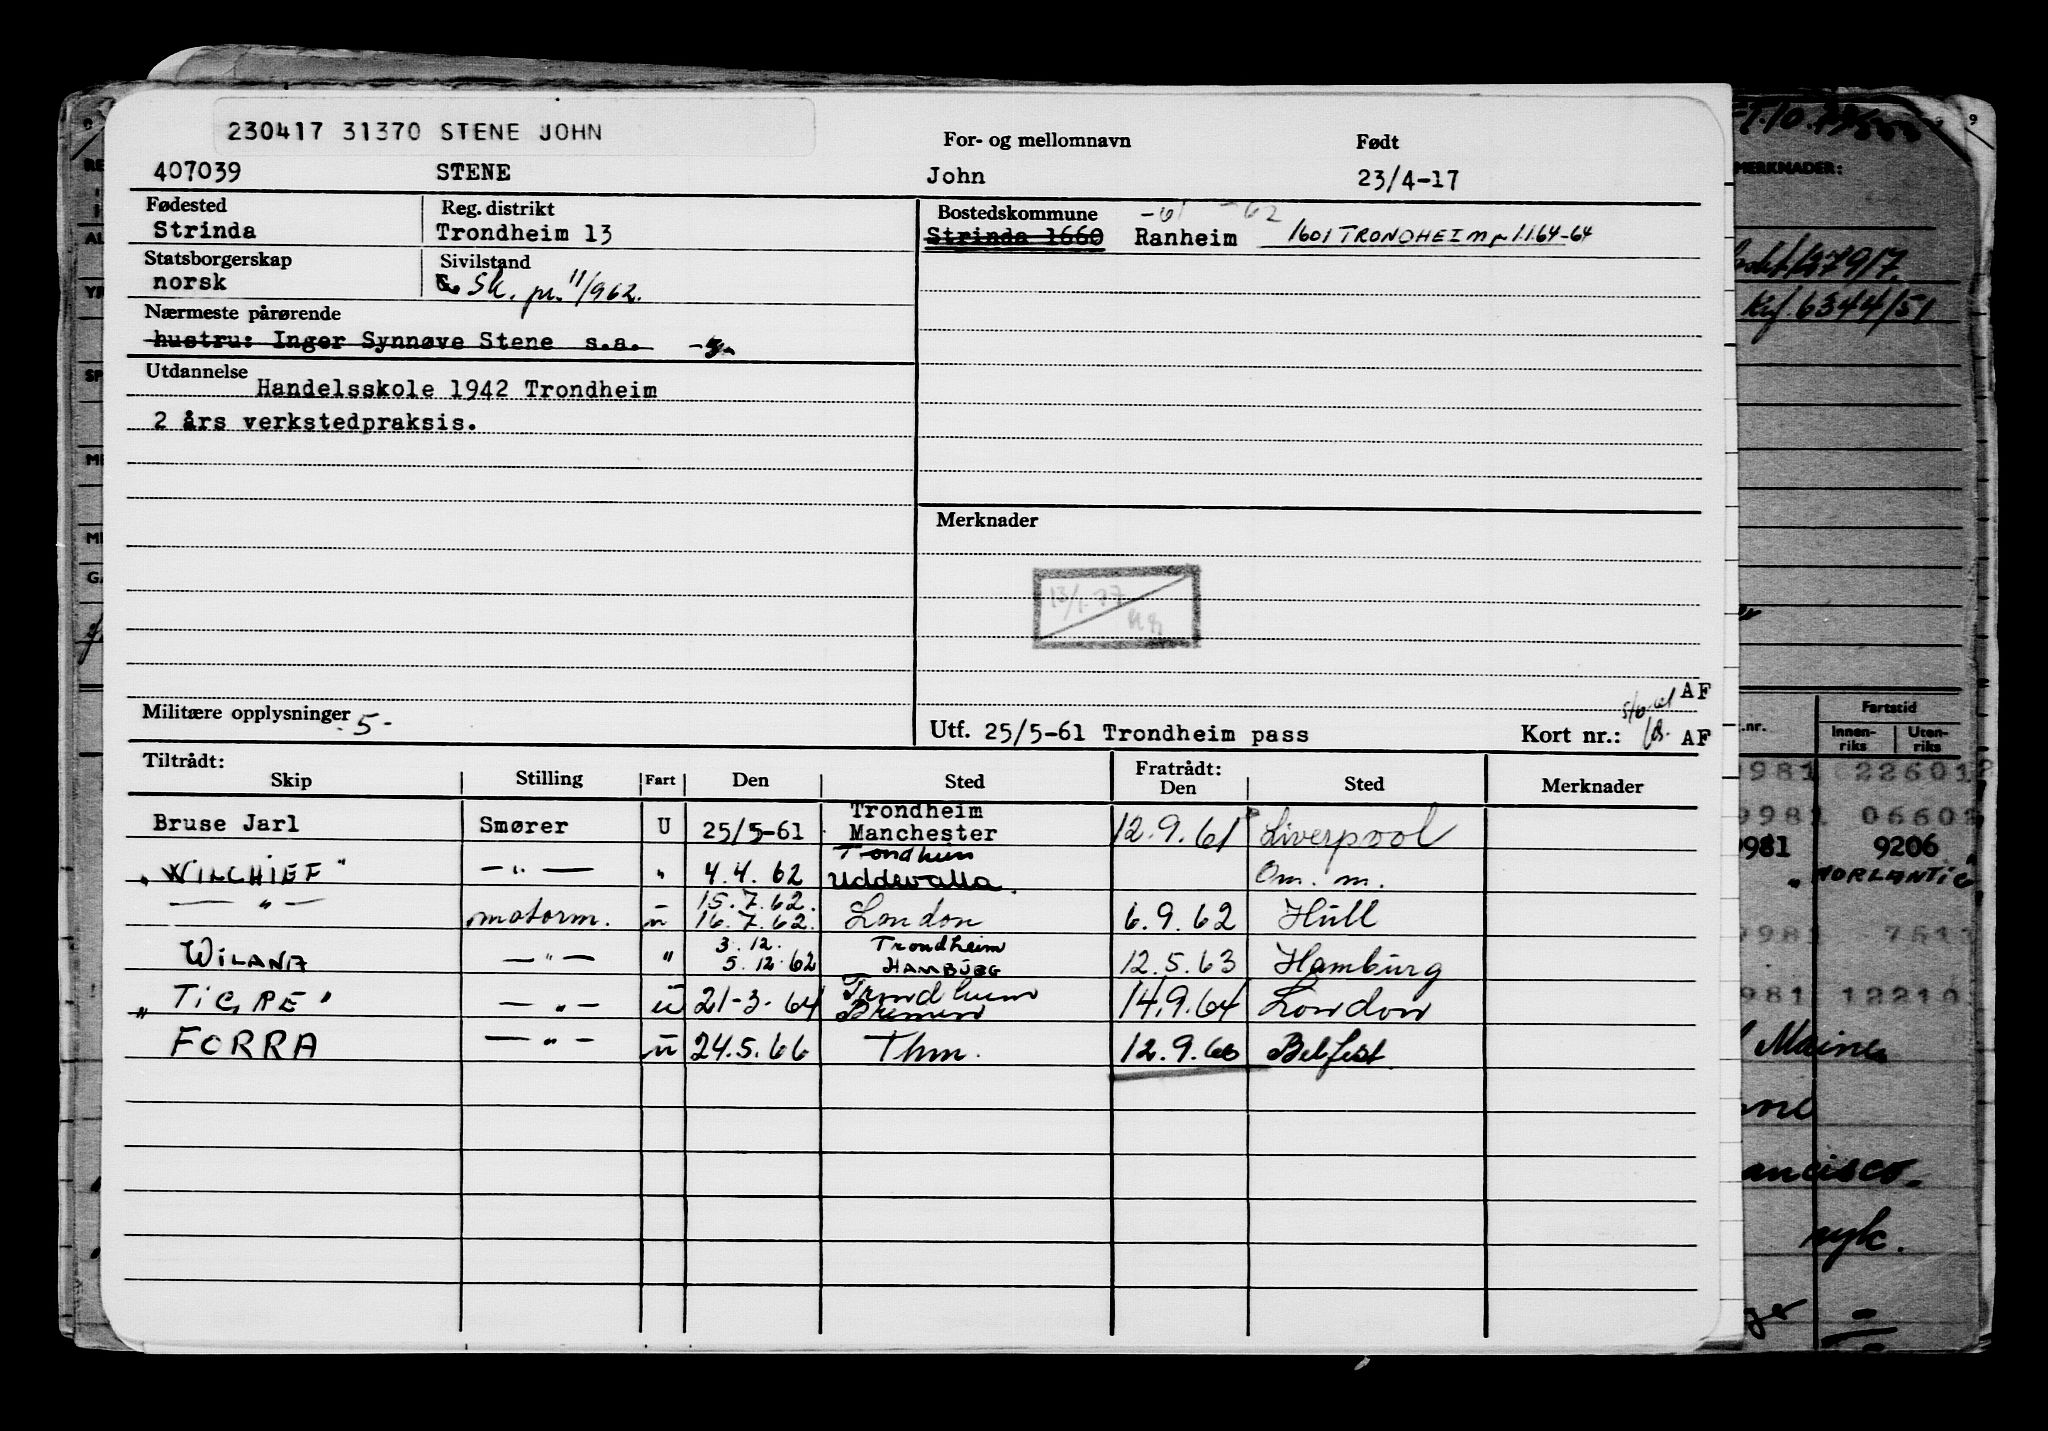 230417 31370 STENE JOHN
For- og mellomnavn Født
407039 STENE John 23/4-17
Fødested Reg. distrikt Bostedskommune -61 -62
Strinda Trondheim 13 Strinda 1660 Ranheim 1601 TRONDHEIM pr 1.1.64-64
Statsborgerskap Sivilstand
norsk G. Sk. pr. 11/962.
Nærmeste pårørende
hustru: Inger Synnøve Stene s.a.
Utdannelse
Handelsskole 1942 Trondheim
2 års verkstedpraksis.
Merknader
13/1-77
AF
Militære opplysninger 5-
Utf. 25/5-61 Trondheim pass Kort nr.: AF
Tiltrådt: Fratrådt:
Skip Stilling Fart Den Sted Den Sted Merknader
Trondheim
Bruse Jarl Smører U 25/5-61 Manchester 12.9.61 Liverpool
Trondheim
"WILCHIEF" — " — " 4.4.62 Uddevalla. Om. m.
— " — 15.7.62.
motorm. u 16.7.62. London 6.9.62 Hull
3.12. Trondheim
WILAND — " — " 5.12.62 HAMBURG 12.5.63 Hamburg
"TIGRE" — " — u 21-3-64 Trondheim Bremen 14.9.64 London
FORRA — " — u 24.5.66 Thm. 12.9.66 Belfast.
MERKNADER:
6344/51
Fartstid
nr. Innen-riks Uten-riks
9981 22601
9981 0660
9981 9206
"NORLANTIC"
9981 7511
981 12210
Maine
ancisco.
nyk.